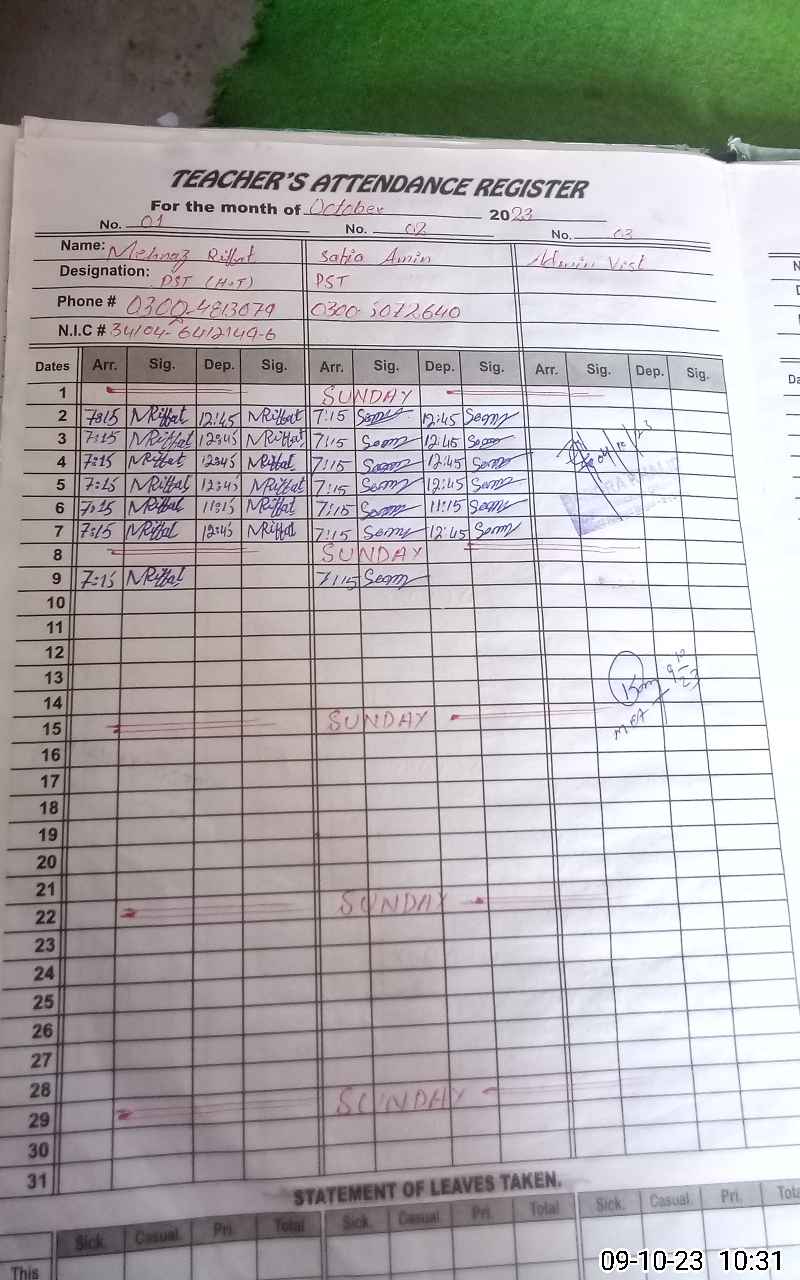 TEACHER'S ATTENDANCE REGISTER
For the month of October 2023
No. 01 No. 02 No. 03
Name: Mehnaz Riffat Safia Amin Admin Visit
Designation: PST (H.T) PST
Phone # 0300-4813079 0300-5072640
N.I.C # 34104-6412149-6
Dates Arr. Sig. Dep. Sig. Arr. Sig. Dep. Sig. Arr. Sig. Dep. Sig.
1 SUNDAY
2 7:15 MRiffat 12:45 MRiffat 7:15 12:45
3 7:15 MRiffat 12:45 MRiffat 7:15 12:45
4 7:15 MRiffat 12:45 MRiffat 7:15 12:45
5 7:15 MRiffat 12:45 MRiffat 7:15 12:45
6 7:15 MRiffat 11:15 MRiffat 7:15 11:15
7 7:15 MRiffat 12:45 MRiffat 7:15 12:45
8 SUNDAY
9 7:15 MRiffat 7:15
10
11
12
13
14
15 SUNDAY
MEA
16
17
18
19
20
21
22 SUNDAY
23
24
25
26
27
28
29 SUNDAY
30
31
STATEMENT OF LEAVES TAKEN.
Sick. Casual. Pri. Total Sick. Casual Pri. Total Sick. Casual. Pri.
This
09-10-23 10:31